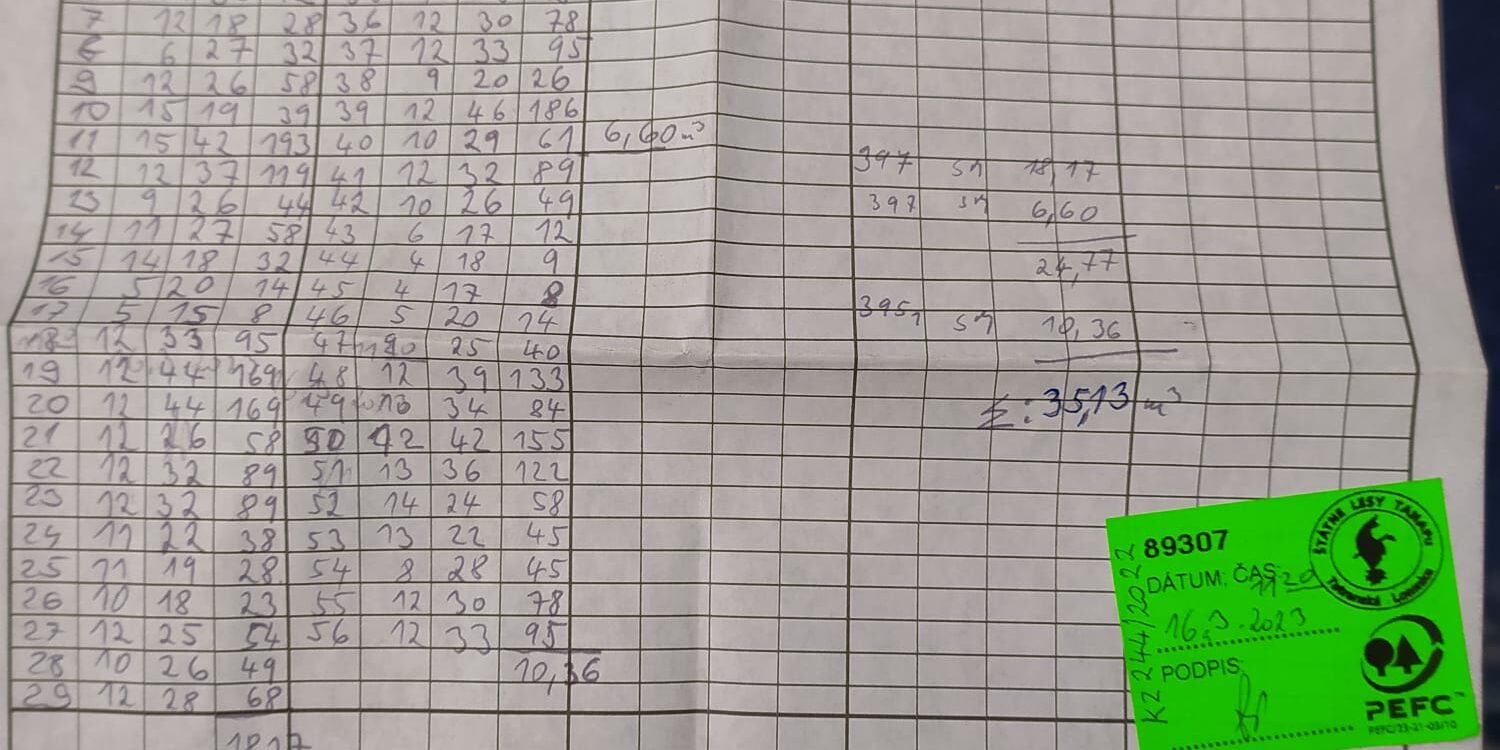 7 12 18 28 36 12 30 78
6 27 32 37 12 33 95
9 12 26 58 38 9 20 26
10 15 19 39 39 12 46 186
11 15 42 193 40 10 29 61 6,60 m³
12 12 37 119 41 12 32 89 397 sm 18,17
13 9 26 44 42 10 26 49 397 sm 6,60
14 11 27 58 43 6 17 12
15 14 18 32 44 4 18 9 24,77
16 5 20 14 45 4 17 8
17 5 15 8 46 5 20 14 395 sm 10,36
18 12 33 95 47 25 40
19 12 44 169 48 12 39 133
20 12 44 169 49 13 34 84 Σ: 35,13 m³
21 12 26 58 50 12 42 155
22 12 32 89 51 13 36 122
23 12 32 89 52 14 24 58
24 11 22 38 53 13 22 45
25 11 19 28 54 8 28 45
26 10 18 23 55 12 30 78
27 12 25 54 56 12 33 95
28 10 26 49 10,36
29 12 28 68
18,17
ŠTÁTNE LESY TANAPU
Tatranská Lomnica
89307
DÁTUM: ČAS: 1120
16.3.2023
PODPIS:
KZ 244/2022
PEFC™
PEFC/23-21-03/10